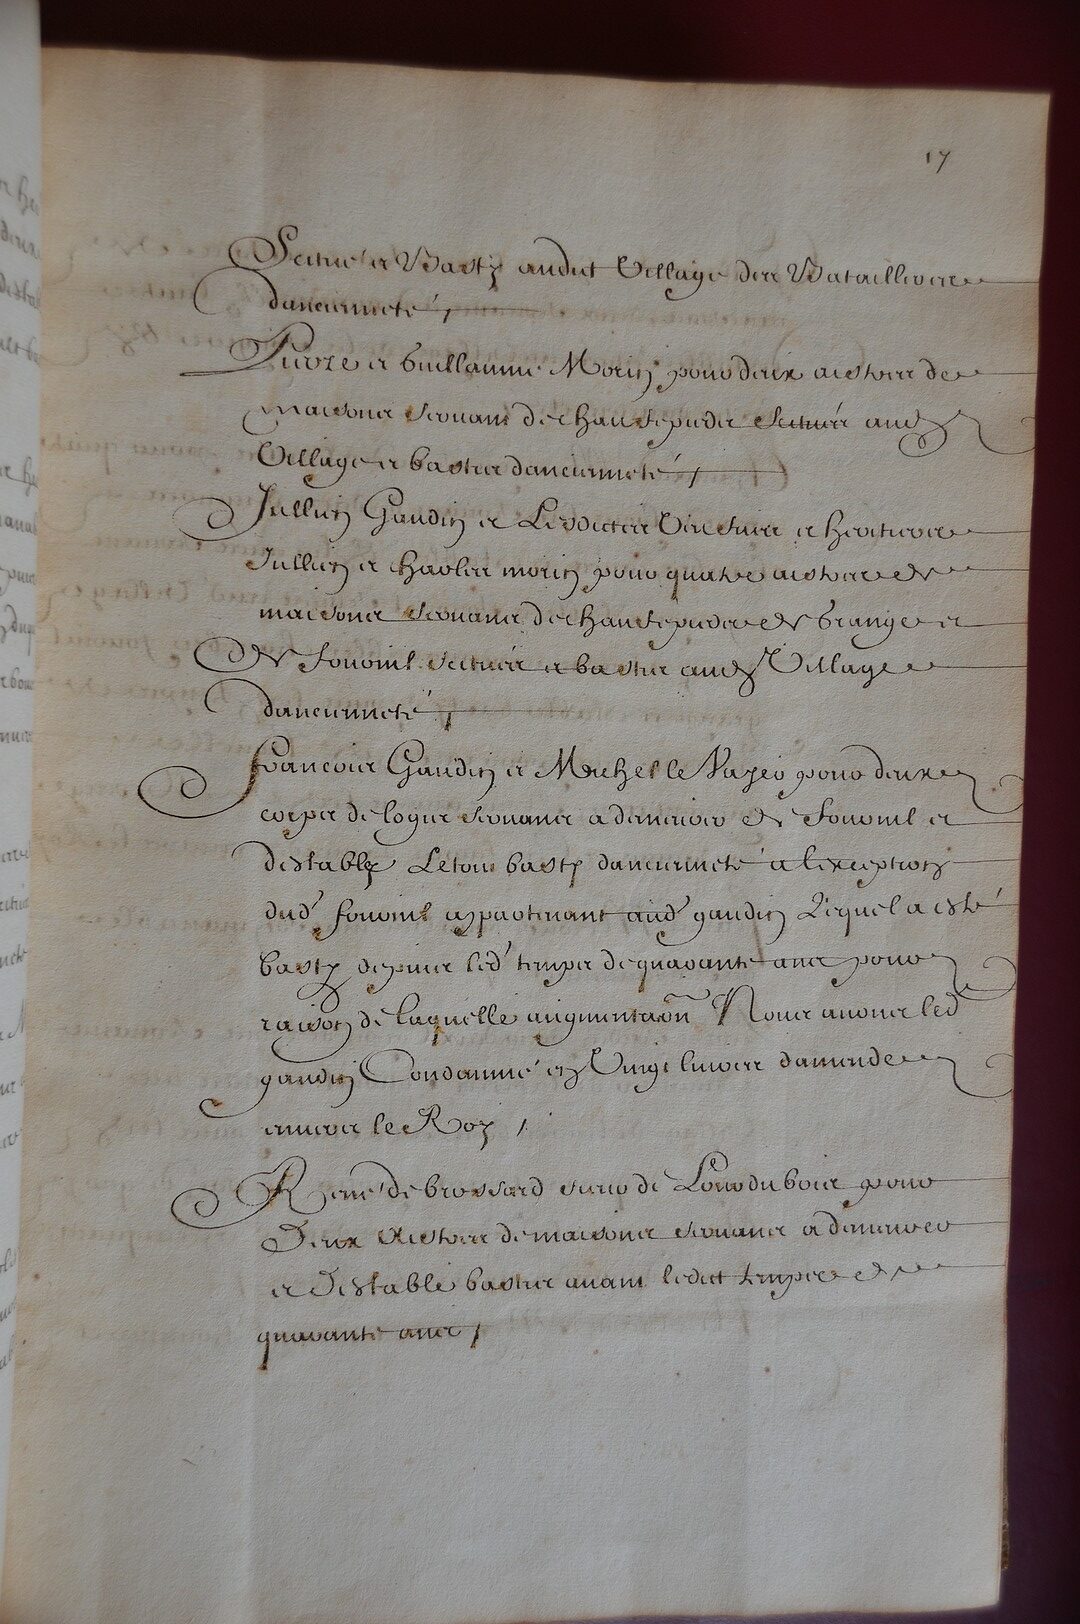 17
Scitué et Basty audict Village des Batailleres
dancienneté /
Pierre et Guillaume Morin pour deux aistres de
maisons servant de chaufepieds scitués aud
Village et basties dancienneté /
Jullien Gaudin et Lesdictes et heritiers
Jullien et Charles morin pour quatre aistres de
maisons servans de chaufepieds de Grange et
de fournil scitués et basties aud Village
dancienneté /
Francois Gaudin et Michel le pour deux
corps de logis servans a demeurer de fournil et
destable Le tout basty dancienneté a lexception
dud fournil appartenant aud gaudin Lequel a esté
basty depuis led temps de quarante ans pour
raison de laquelle augmentaon Nous avons led
gaudin Condamné en Vingt livres damende
envers le Roy /
René de brossard sieur de pour
Deux Aistres de maisons servans a demeurer
et Destable basties avant ledict temps de
quarante ans /